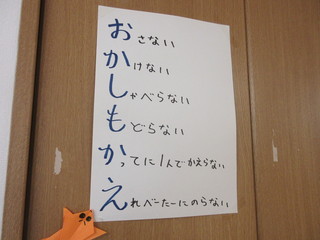 おさない
かけない
しゃべらない
もどらない
かってに1人でかえらない
えれべーたーにのらない